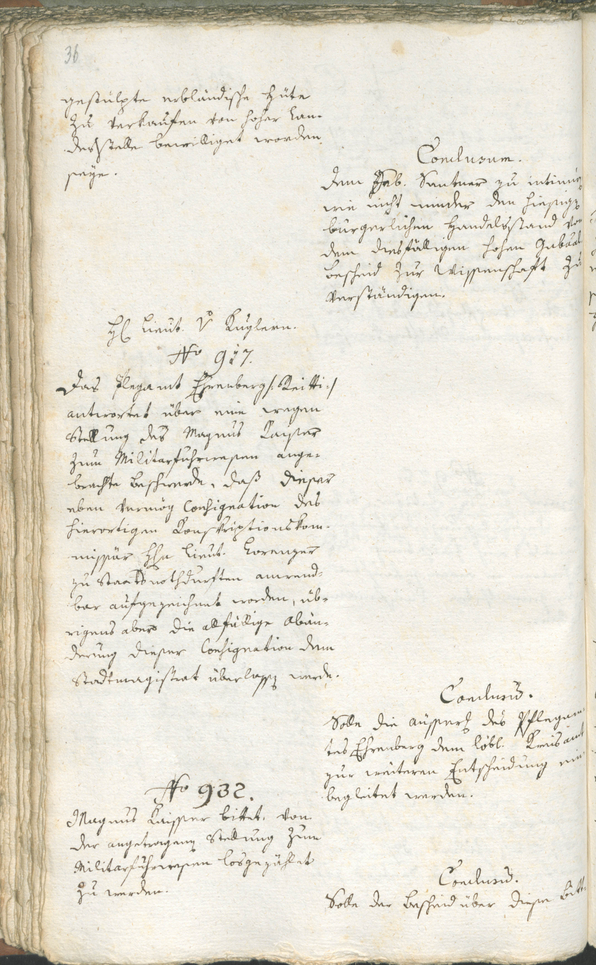 36
gestülpte erbländische Hüte
zu verkaufen von hoher Lan-
desstelle bewilliget worden
seye.
Conclusum.
Dem Jab. Santner zu intimir
wie nicht minder den hiesigen
bürgerlichen Handelsstand von
dem diesfälligen hohen Gub
Bescheid zur Wissenschaft zu
verständigen.
H Lieut. v Kuglern.
No 917.
Das Pflegamt Ehrenberg/:Reitti:/
antwortet über eine wegen
Stellung des Magnus Kaisser
zum Militarfuhrwesen ange-
brachte Beschwerde, daß dieser
eben vermög Consignation des
hierortigen Konskriptionskom-
missär Hh Lieut. Lorenzer
zu Staatsnothdurften anwend-
bar aufgezeichnet worden, üb-
rigens aber die allfällige Abän-
derung dieser Consignation dem
Stadtmagistrat überlassen werde.
Conclusum.
Solle die Ausserung des Pflegam
tes Ehrenberg dem löbl. Kreisamt
zur weiteren Entscheidung ein
begleitet werden.
No 932.
Magnus Kaisser bittet von
der angetragenen Stellung zum
Militarfuhrwesen losgezählet
zu werden.
Conclusum.
Solle der Bescheid über diese Bitt